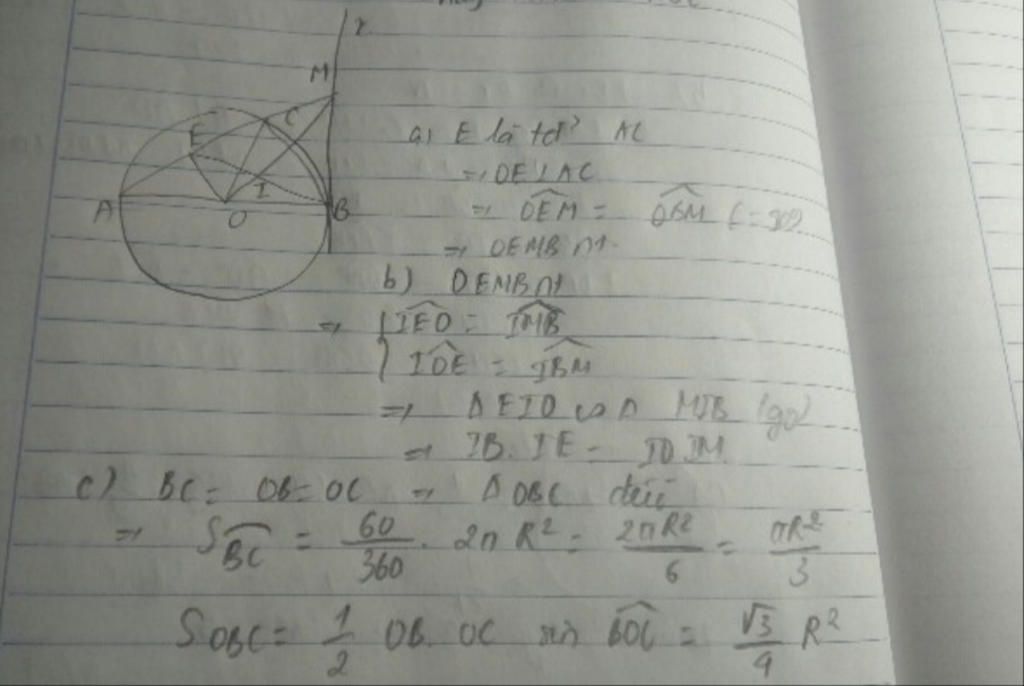 x
M
E
C
I
A
O
B
a) E là tđ AC
=> OE ⊥ AC
=> \widehat{OEM} = \widehat{OBM} (= 90)
=> OEMB nt.
b) OEMB nt
=> { \widehat{IEO} = \widehat{IMB}
\widehat{IOE} = \widehat{IBM}
=> Δ EIO ∽ Δ MIB (gg)
=> IB. IE = IO IM
c) BC = OB = OC => Δ OBC đều
=> S\widehat{BC} = 60/360 . 2π R² = 2πR²/6 = πR²/3
SOBC = 1/2 OB. OC sin \widehat{BOC} = √3/4 R²